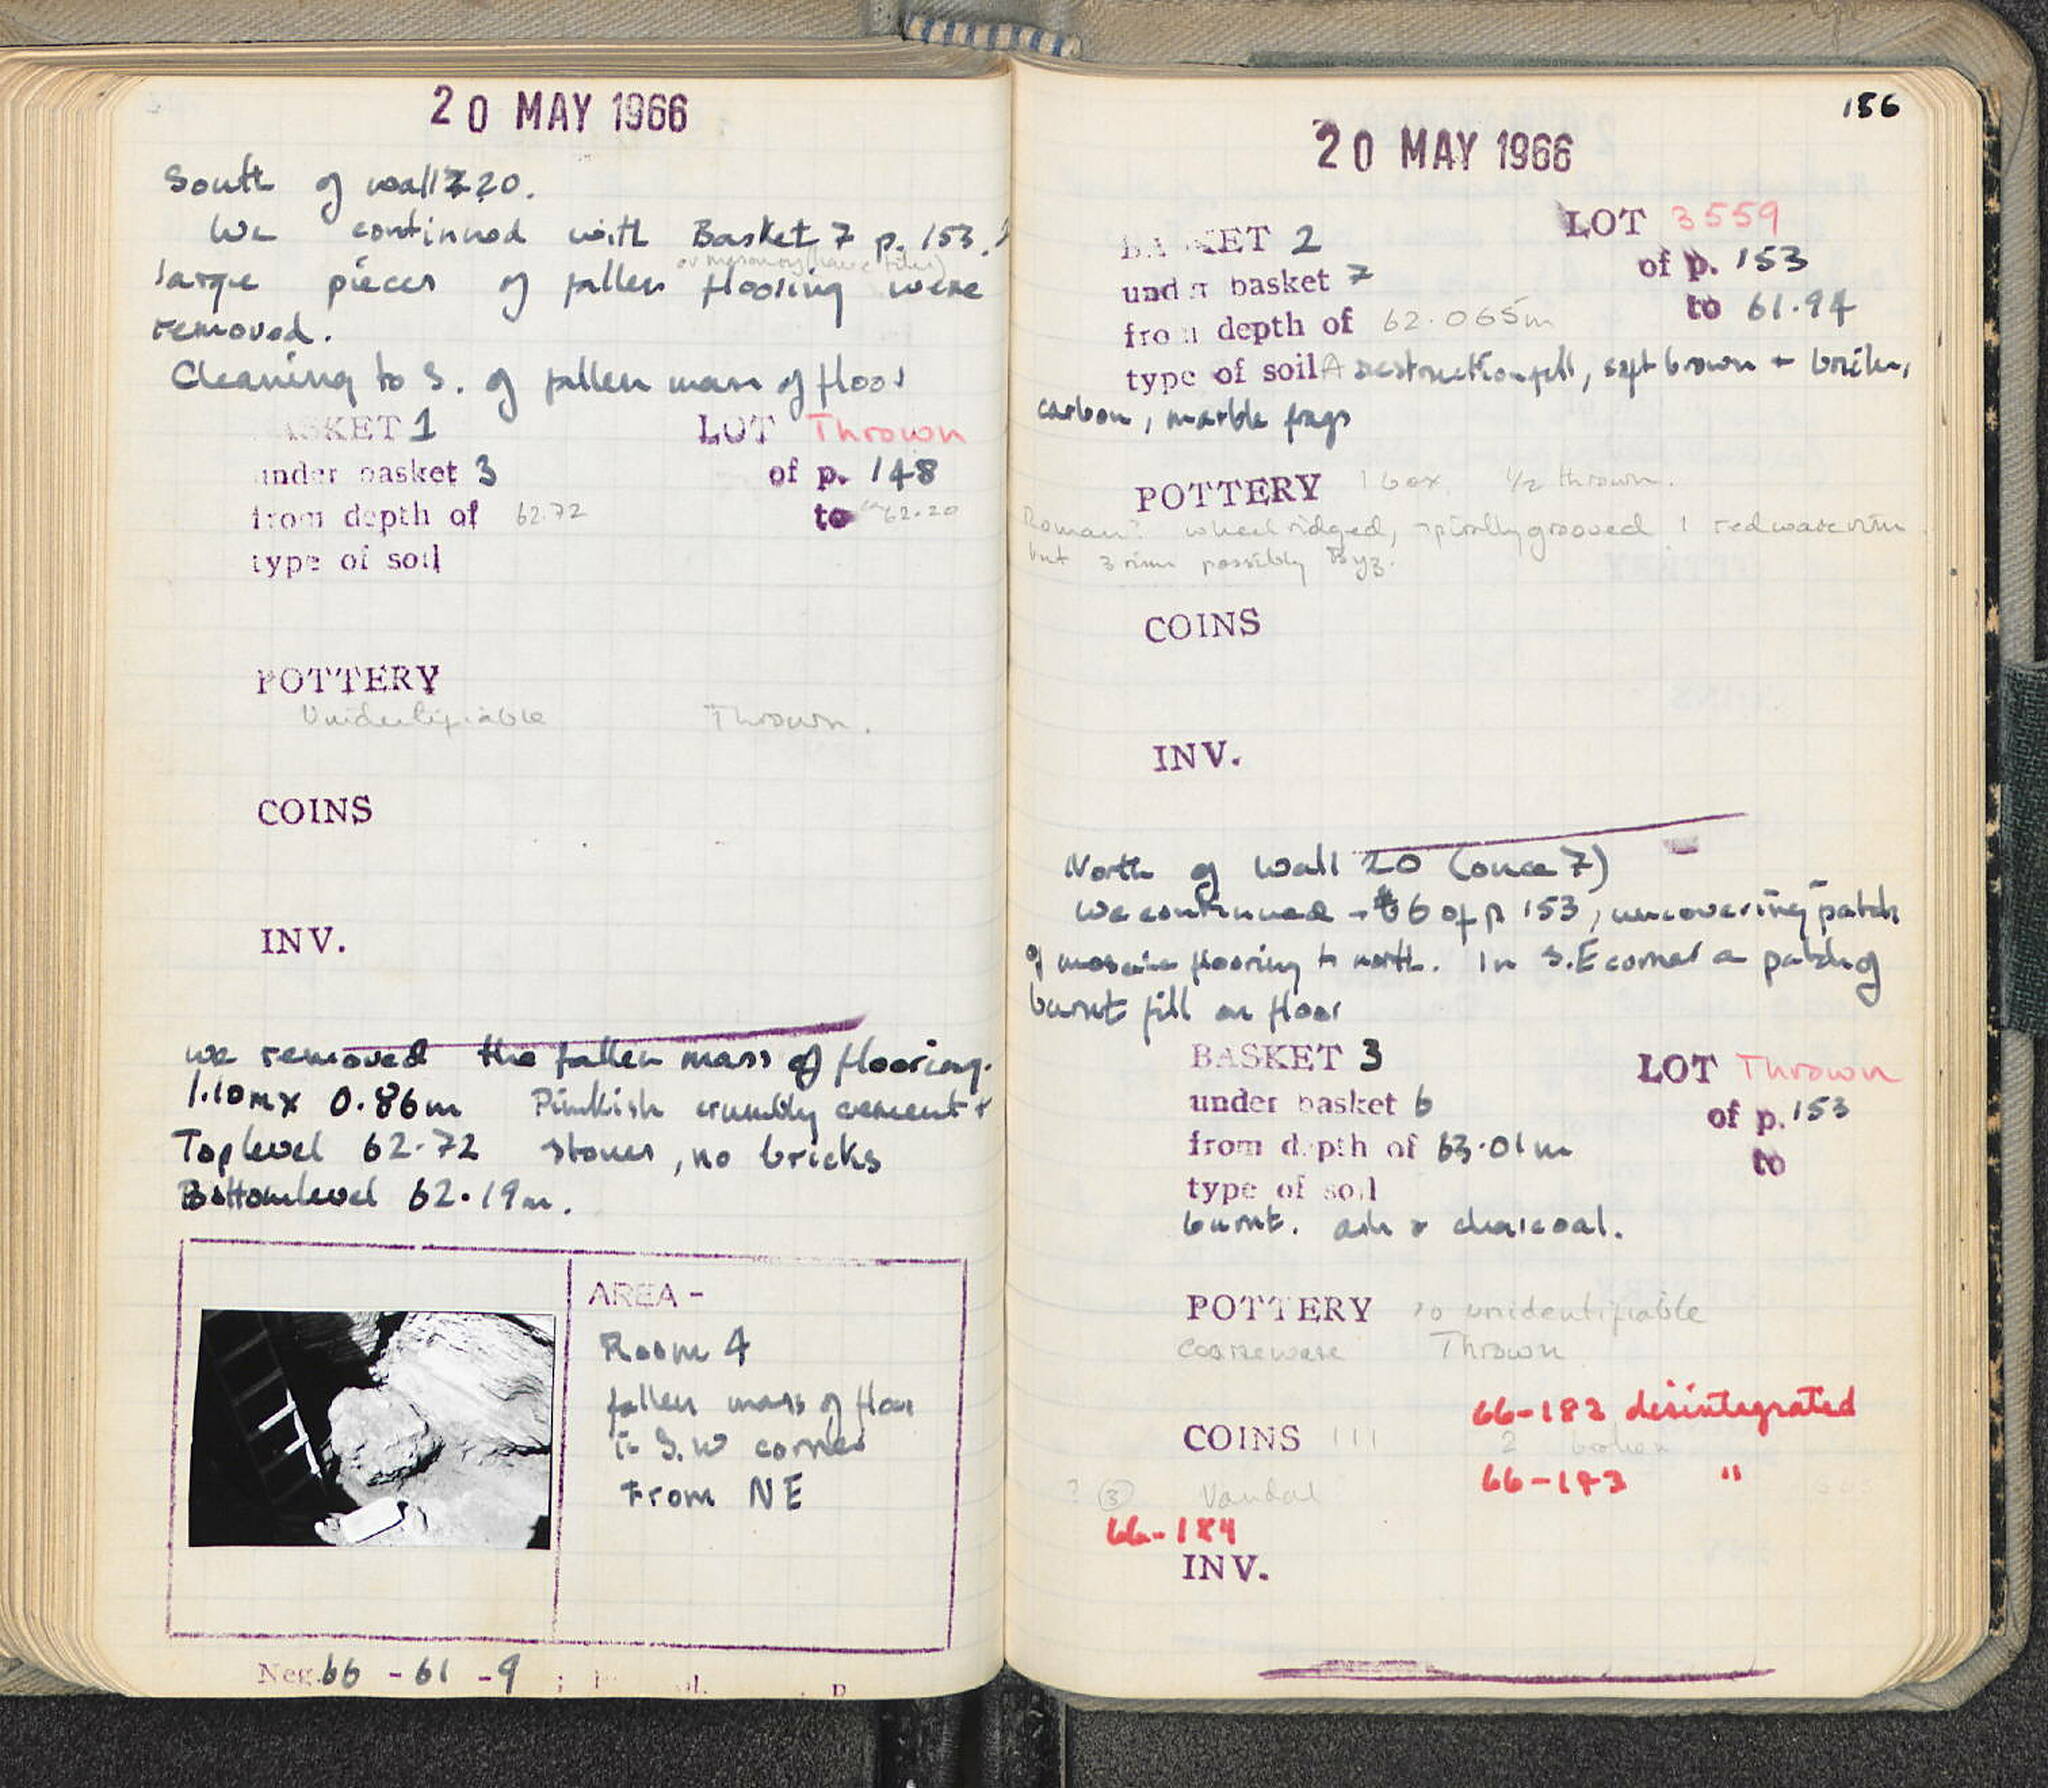 20 MAY 1966
South of wall 20.
We continued with Basket 7 p. 153.
or masonry (have tiles)
large pieces of fallen flooring were
removed.
Cleaning to S. of fallen mass of floor
BASKET 1 LOT Thrown
under basket 3 of p. 148
from depth of 62.72 to 62.20
type of soil
POTTERY
Unidentifiable Thrown.
COINS
INV.
We removed the fallen mass of flooring.
1.10m x 0.86m Pinkish crumbly cement +
Top level 62.72 stones, no bricks
Bottom level 62.19m.
AREA -
Room 4
fallen mass of floor
in S.W corner
From NE
Neg. 66 - 61 - 9
156
20 MAY 1966
BASKET 2 LOT 3559
under basket 7 of p. 153
from depth of 62.065m to 61.94
type of soil A destruction fill, soft brown + bricks,
carbon, marble frags
POTTERY 1 box 1/2 thrown.
Roman? wheel ridged, spirally grooved 1 redware rim
but 3 rims possibly Byz.
COINS
INV.
North of Wall 20 (once 7)
We continued - 6 of p 153, uncovering patch
of mosaic flooring to north. In S.E corner a patch of
burnt fill on floor
BASKET 3 LOT Thrown
under basket 6 of p. 153
from depth of 63.01m to
type of soil
burnt. ash & charcoal.
POTTERY 10 unidentifiable
coarseware Thrown
66-182 disintegrated
COINS III 2 broken
66-183 "
? ③ Vandal
66-184
INV.